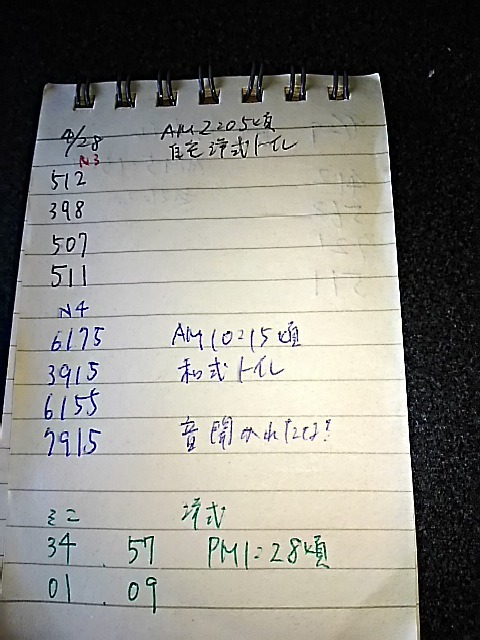 4/28 AM2:05頃
N3 自宅洋式トイレ
512
398
507
511
N4
6175 AM10:15頃
3915 和式トイレ
6155
7915 音聞かれたな!
ミニ 洋式
34 57 PM1:28頃
01 09